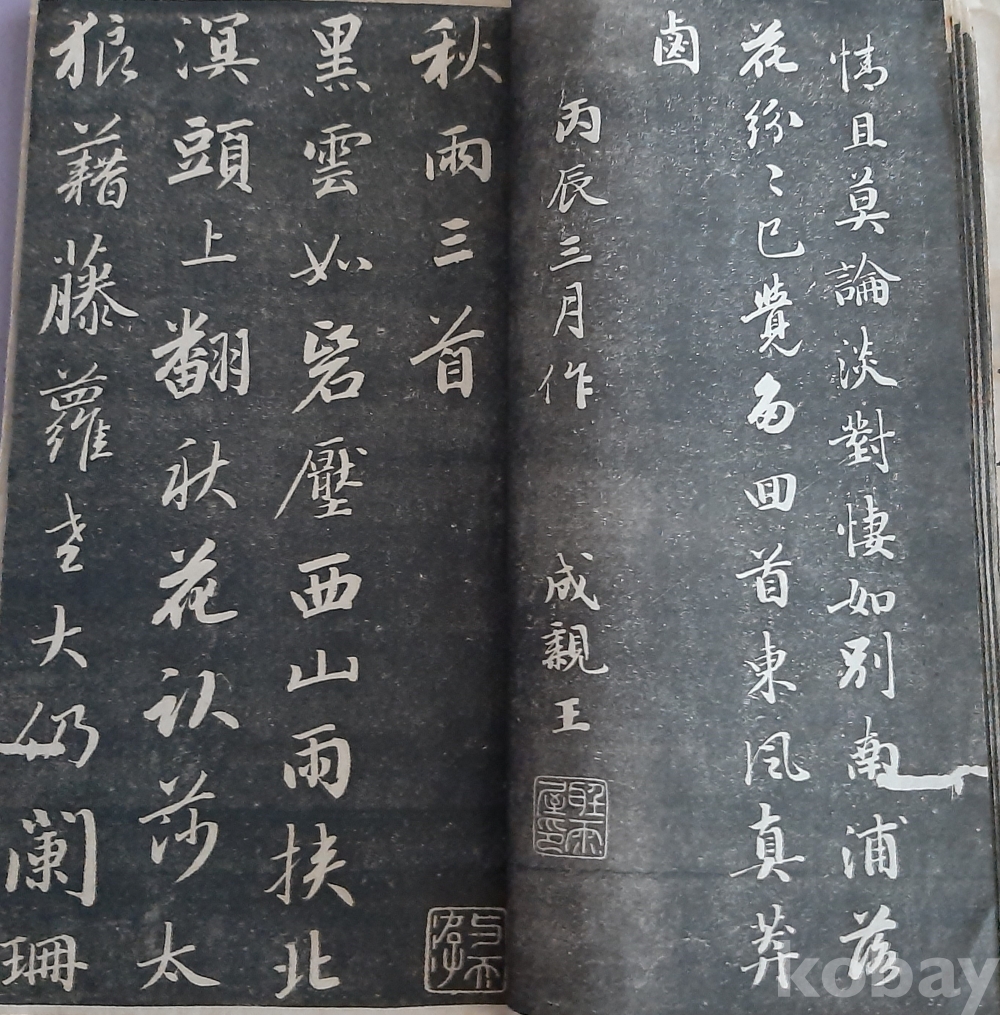 情且莫論淡對悽如別南浦落
花紛〻已覺多回首東風真莽
鹵
丙辰三月作 成親王
秋雨三首
黑雲如髻壓西山雨挾北
溟頭上翻秋花趺莎太
狼藉藤蘿老大仍闌
珊
kobay